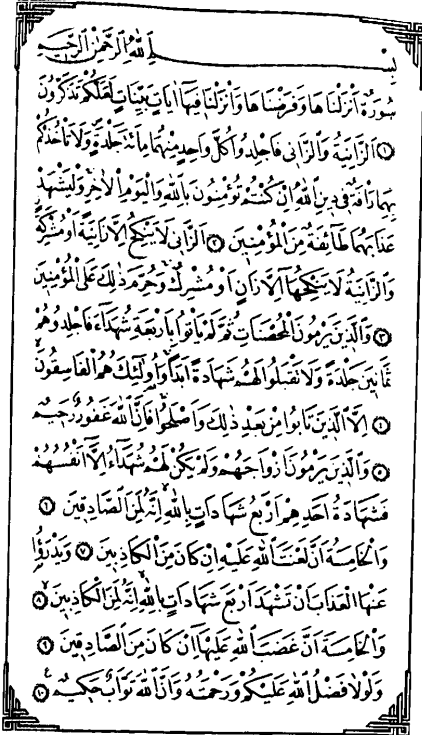 بِسْــــــمِ اللّٰهِ الرَّحْمٰنِ الرَّحِيمِ
سُورَةٌ اَنْزَلْنَاهَا وَفَرَضْنَاهَا وَاَنْزَلْنَا فِيهَا اٰيَاتٍ بَيِّنَاتٍ لَعَلَّكُمْ تَذَكَّرُونَ
١ اَلزَّانِيَةُ وَالزَّانِى فَاجْلِدُوا كُلَّ وَاحِدٍ مِنْهُمَا مِائَةَ جَلْدَةٍ وَلَا تَأْخُذْكُمْ
بِهِمَا رَأْفَةٌ فِى دِينِ اللّٰهِ اِنْ كُنْتُمْ تُؤْمِنُونَ بِاللّٰهِ وَالْيَوْمِ الْاٰخِرِ وَلْيَشْهَدْ
عَذَابَهُمَا طَائِفَةٌ مِنَ الْمُؤْمِنِينَ ٢ اَلزَّانِى لَا يَنْكِحُ اِلَّا زَانِيَةً اَوْ مُشْرِكَةً
وَالزَّانِيَةُ لَا يَنْكِحُهَا اِلَّا زَانٍ اَوْ مُشْرِكٌ وَحُرِّمَ ذٰلِكَ عَلَى الْمُؤْمِنِينَ
٣ وَالَّذِينَ يَرْمُونَ الْمُحْصَنَاتِ ثُمَّ لَمْ يَأْتُوا بِاَرْبَعَةِ شُهَدَاءَ فَاجْلِدُوهُمْ
ثَمَانِينَ جَلْدَةً وَلَا تَقْبَلُوا لَهُمْ شَهَادَةً اَبَدًا وَاُولٰئِكَ هُمُ الْفَاسِقُونَ
٤ اِلَّا الَّذِينَ تَابُوا مِنْ بَعْدِ ذٰلِكَ وَاَصْلَحُوا فَاِنَّ اللّٰهَ غَفُورٌ رَحِيمٌ
٥ وَالَّذِينَ يَرْمُونَ اَزْوَاجَهُمْ وَلَمْ يَكُنْ لَهُمْ شُهَدَاءُ اِلَّا اَنْفُسُهُمْ
فَشَهَادَةُ اَحَدِهِمْ اَرْبَعُ شَهَادَاتٍ بِاللّٰهِ اِنَّهُ لَمِنَ الصَّادِقِينَ ٦
وَالْخَامِسَةُ اَنَّ لَعْنَتَ اللّٰهِ عَلَيْهِ اِنْ كَانَ مِنَ الْكَاذِبِينَ ٧ وَيَدْرَؤُا
عَنْهَا الْعَذَابَ اَنْ تَشْهَدَ اَرْبَعَ شَهَادَاتٍ بِاللّٰهِ اِنَّهُ لَمِنَ الْكَاذِبِينَ ٨
وَالْخَامِسَةَ اَنَّ غَضَبَ اللّٰهِ عَلَيْهَا اِنْ كَانَ مِنَ الصَّادِقِينَ ٩
وَلَوْلَا فَضْلُ اللّٰهِ عَلَيْكُمْ وَرَحْمَتُهُ وَاَنَّ اللّٰهَ تَوَّابٌ حَكِيمٌ ١٠ ع